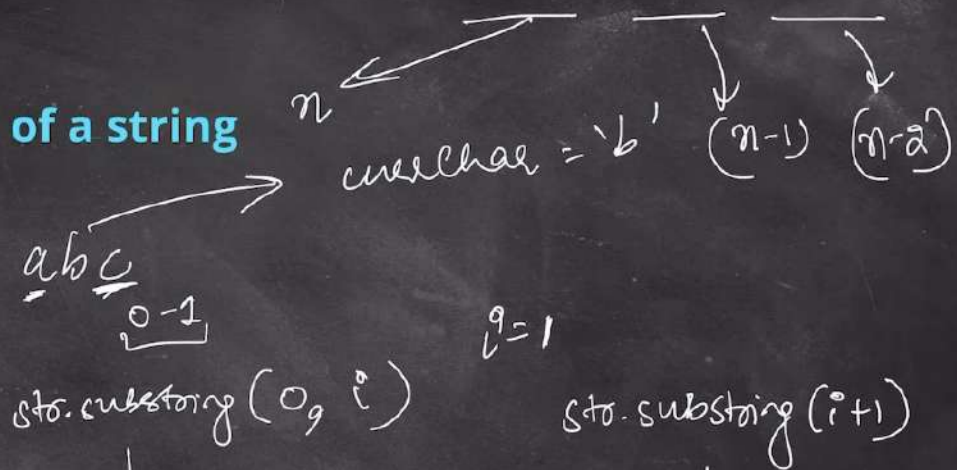 of a string
n
currChar = 'b'
(n-1)
(n-2)
abc
0-1
i=1
str.substring (0, i)
str.substring (i+1)